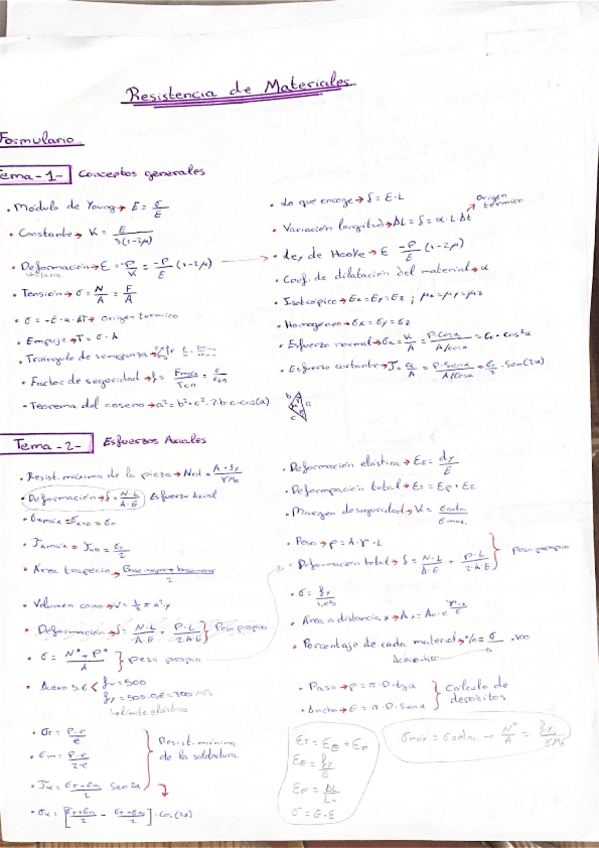 Resistencia de Materiales
Formulario.
Tema-1- Conceptos generales
• Modulo de Young → E = σ/ε
• Constante → K = E/3(1-2μ)
• Deformación → ε = -P/K = -P/E (1-2μ)
uniforme
• Tensión → σ = N/A = F/A
• σ = -E·α·ΔT → origen termico
• Empuje → T = σ·A
• Triangulo de semejanza →
• Factor de seguridad →
• Teorema del coseno → a² = b² + c² - 2·b·c·cos(a)
• Lo que encoge → δ = ε·L
• Variación longitud → ΔL = δ = α·L·Δt
origen termico
• Ley de Hooke → ε -P/E (1-2μ)
• Coef. de dilatación del material → α
• Isotrópico → Ex = Ey = Ez ; μx = μy = μz
• Homogéneo → σx = σy = σz
• Esfuerzo normal → σα = V/A = P·Cosα/A/cosα = σx·cos²α
• Esfuerzo cortante → = P·senα/A/cosα = /2 · Sen(2α)
b a
c
Tema-2- Esfuerzos Axiales
• Resist. máxima de la pieza → Nrd = A·fy/γM0
• Deformación → δ = N·L/A·E Esfuerzo Axial
• σmáx = = σn
• Jmáx = = /2
• Area trapecio → /2
• Volumen cono → V = 1/3 π x²·y
• Deformación → δ = N·L/A·E + P·L/2AE } Peso propio
• σ = N* + P*/A } peso propio
• Acero 5.6 < fu = 500
fy = 500·0,6 = 300
Límite elástico
• σt = P·r/e
• σm = P·r/2·e
• Jα = σt-σm/2 sen2α
• σα = [σt+σm/2 - σt-σm/2]·cos(2α)
Resist. mínima
de la soldadura
• Deformación elástica → εE = fy/E
• Deformación total → εT = εp + εE
• Margen de seguridad → V = σadm/σmax.
• Peso → p = A·γ·L
• Deformación total → δ = N·L/A·E + P·L/2·A·E } peso propio
• σ = fy/1,05
• Area a distancia x →
• Porcentaje de cada material → % = σ/ ·100
• Paso → p = π·D·tgα
• Ancho → = π·D·Senα
Cálculo de
depósitos
εT = εE + εp
εE = fy/E
εp = ΔL/L
σ = E·ε
σmáx = σadm → N*/A = fy/γM0